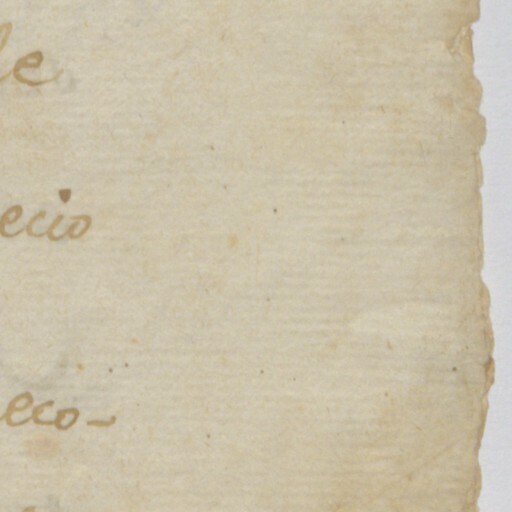 le
ecio
eco-